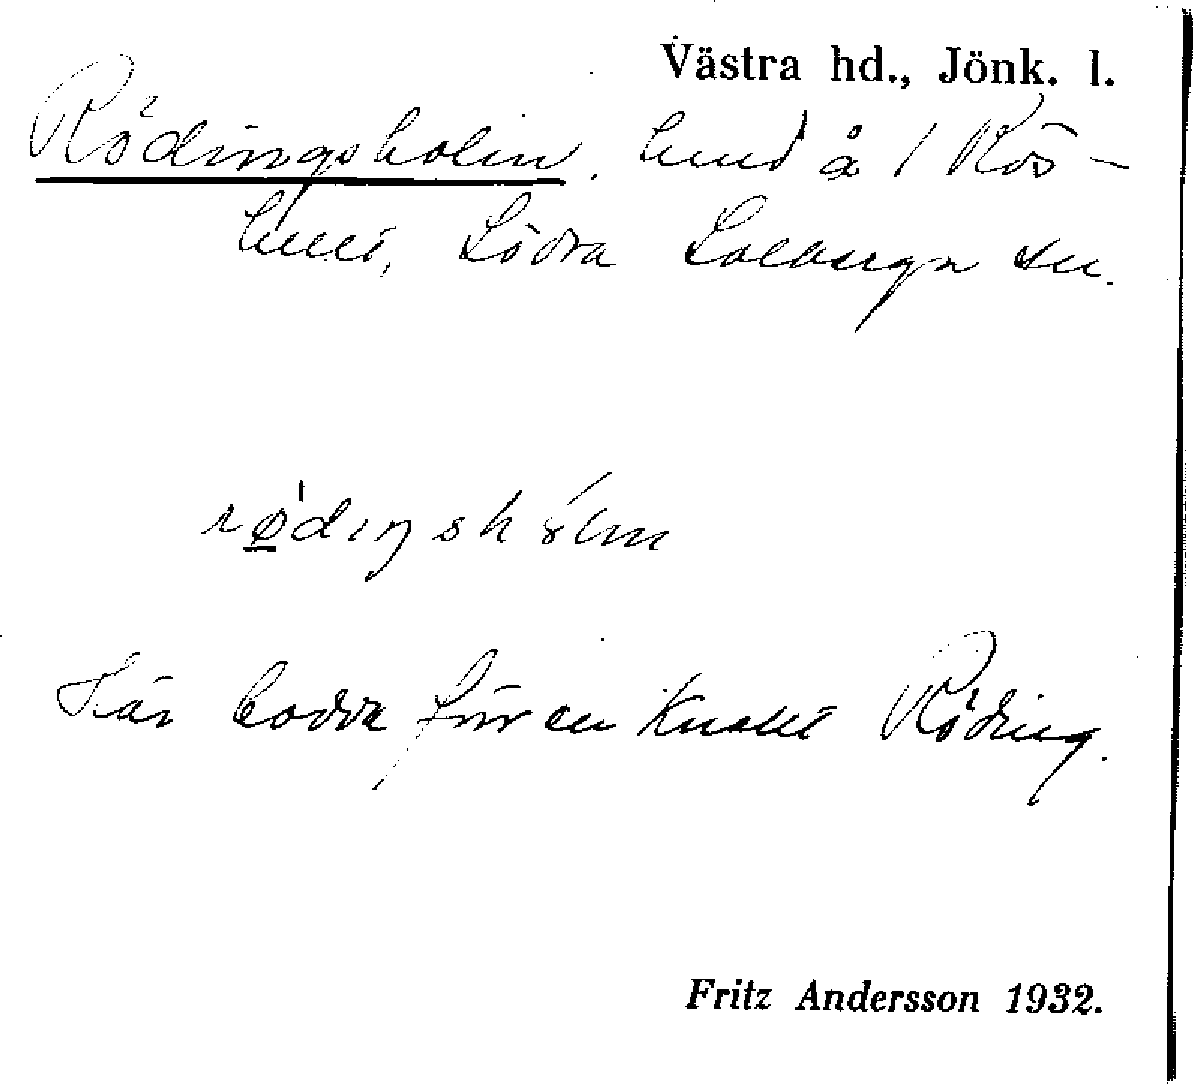 Västra hd., Jönk. l.
Rödingsholm. lund å 1 Rös-
lund, Södra Solberga sn.
rø̱dıŋshó̤lm
Här bodde förr en knekt Röding.
Fritz Andersson 1932.